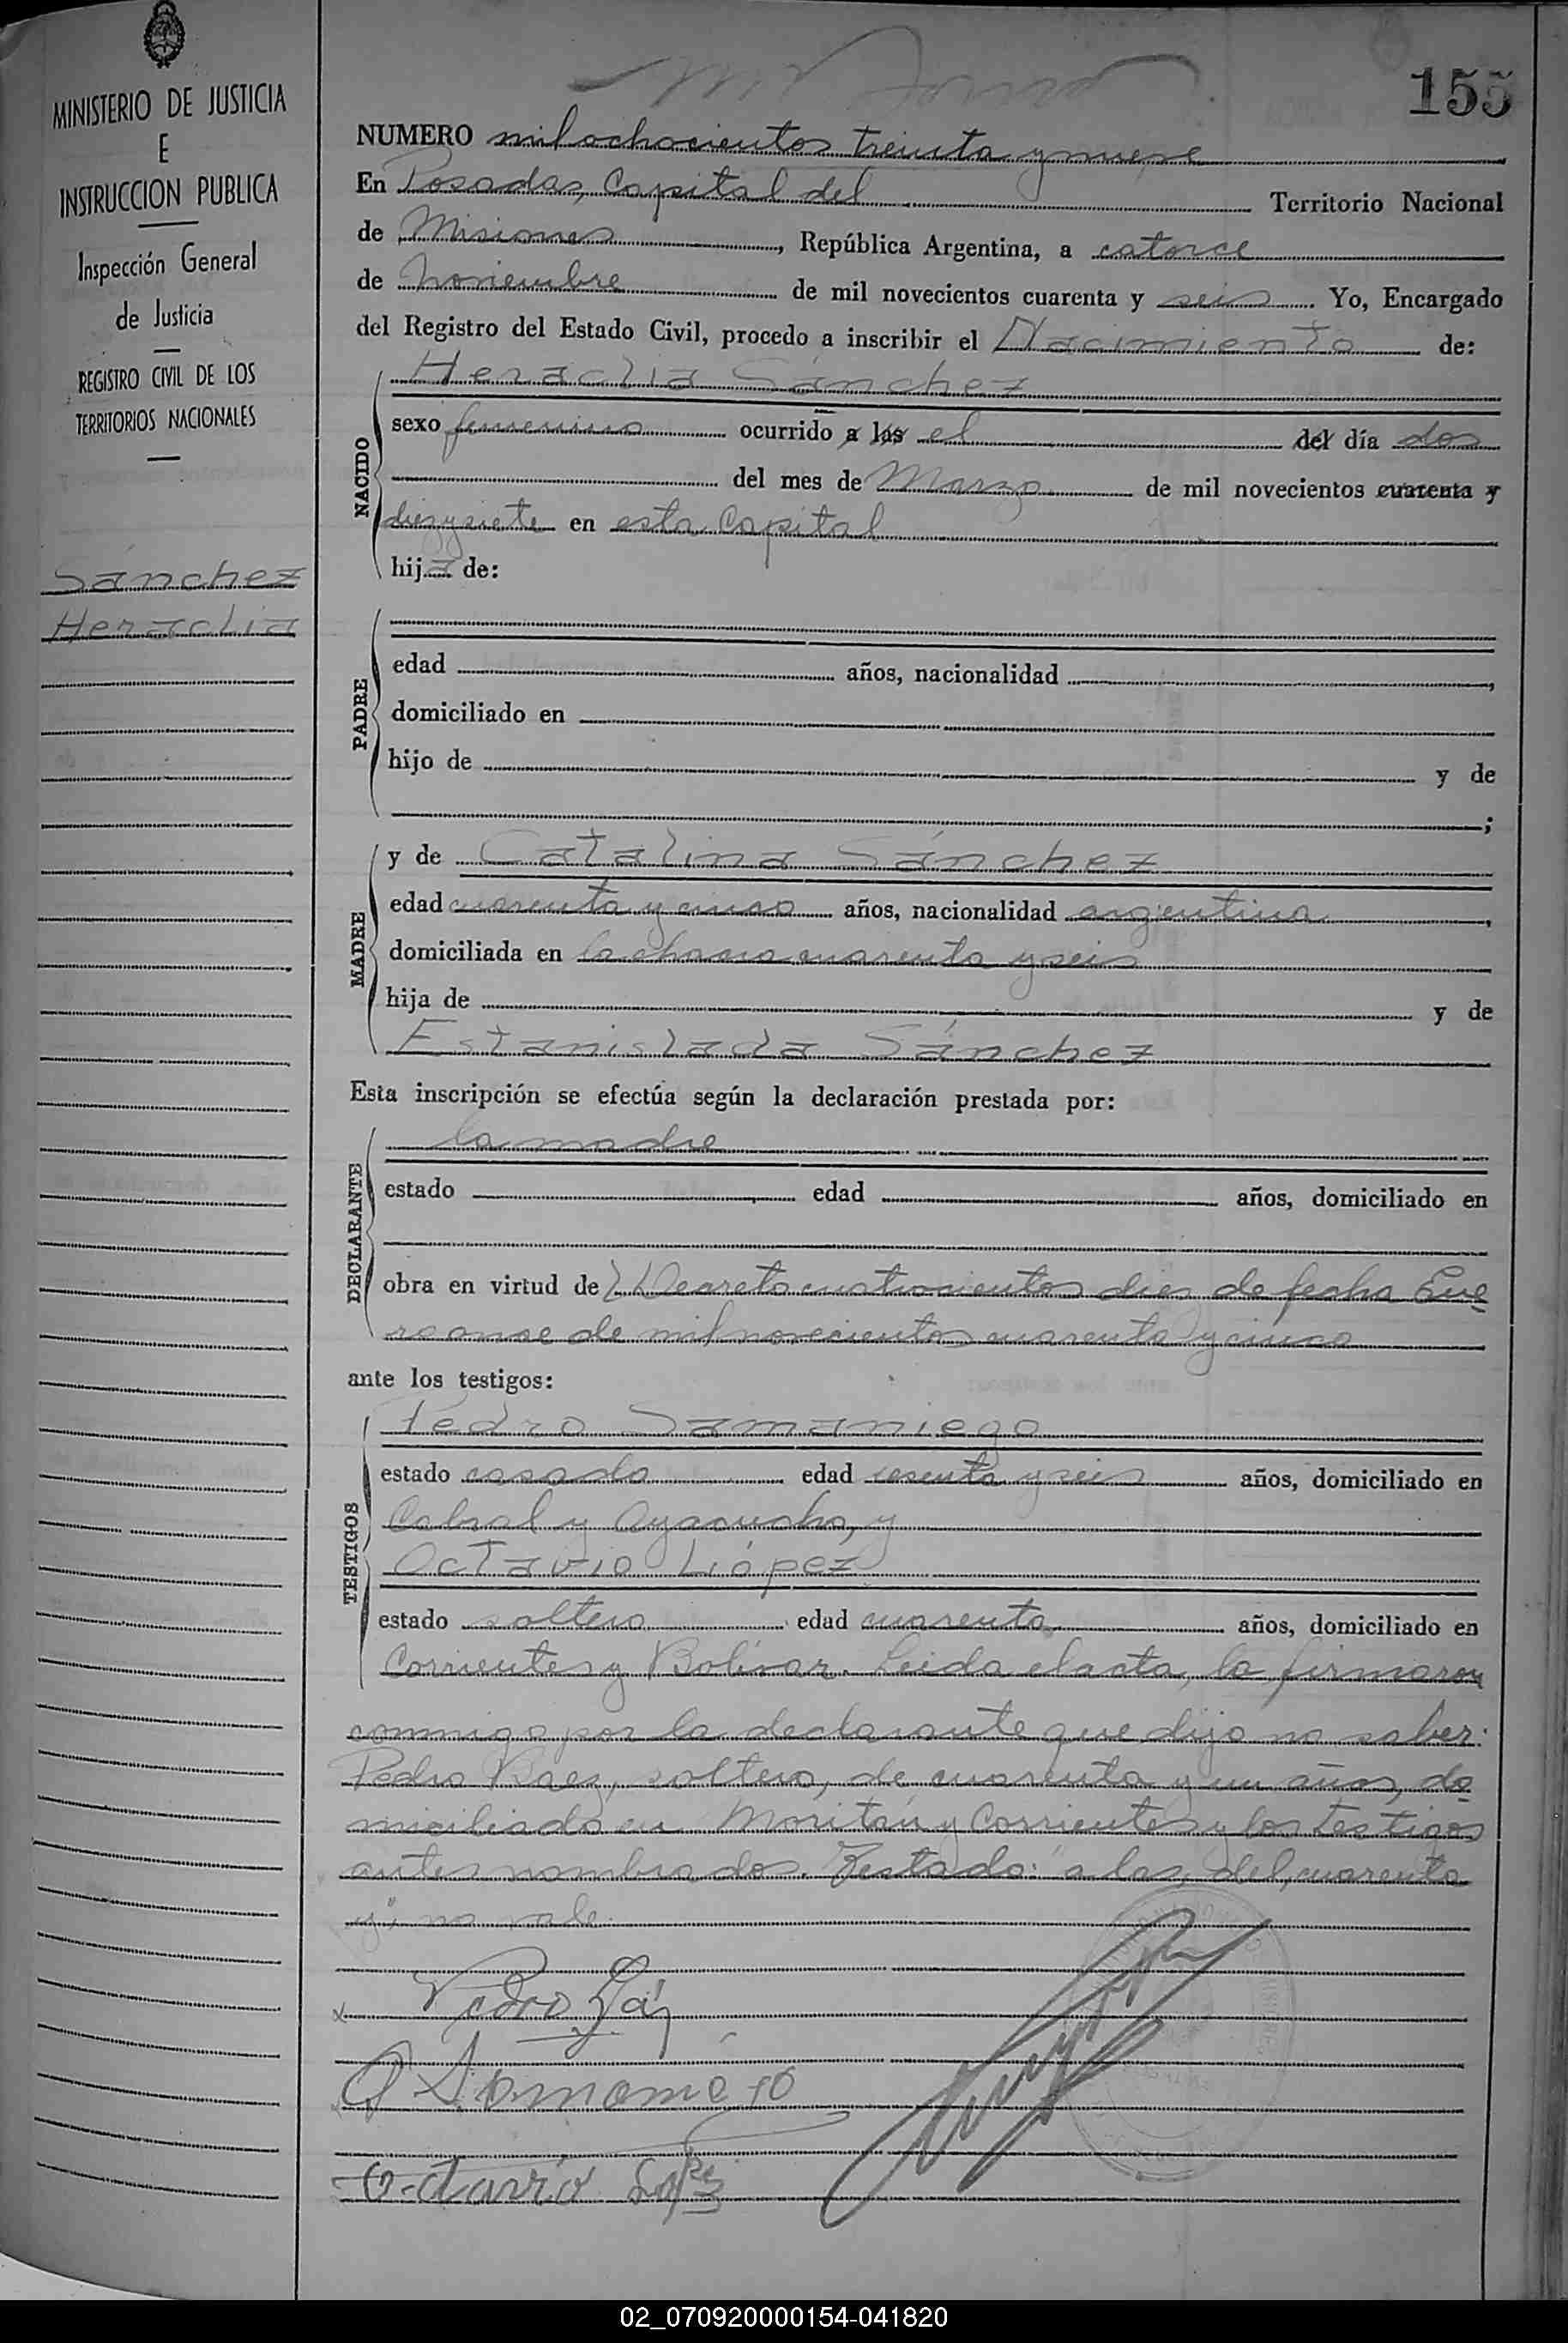 155
MINISTERIO DE JUSTICIA
E
INSTRUCCION PUBLICA
Inspección General
de Justicia
REGISTRO CIVIL DE LOS
TERRITORIOS NACIONALES
Sánchez
Heraclia
NUMERO mil ochocientos treinta y nueve
En Posadas, Capital del Territorio Nacional
de Misiones, República Argentina, a catorce
de Noviembre de mil novecientos cuarenta y seis. Yo, Encargado
del Registro del Estado Civil, procedo a inscribir el Nacimiento de:
NACIDO
Heraclia Sánchez
sexo femenino ocurrido a las el del día dos
del mes de Marzo de mil novecientos cuarenta y
diez y siete en esta Capital
hija de:
PADRE
edad años, nacionalidad ,
domiciliado en
hijo de y de
;
MADRE
y de Catalina Sánchez
edad cuarenta y cinco años, nacionalidad argentina,
domiciliada en la chacra cuarenta y seis
hija de y de
Estanislada Sánchez
Esta inscripción se efectúa según la declaración prestada por:
DECLARANTE
la madre
estado edad años, domiciliado en
obra en virtud de Decreto cuatrocientos diez de fecha Ene
ro once de mil novecientos cuarenta y cinco
ante los testigos:
TESTIGOS
Pedro Samaniego
estado casado edad sesenta y seis años, domiciliado en
Cabral y Ayacucho, y
Octavio López
estado soltero edad cuarenta años, domiciliado en
Corrientes y Bolívar. Leida el acta, la firmaron
conmigo por la declarante que dijo no saber:
Pedro Baez, soltero, de cuarenta y un años, do
miciliado en Moritán y Corrientes y los testigos
antes nombrados. Testado: "a las, del, cuarenta
y", no vale.
Octavio López
02_070920000154-041820